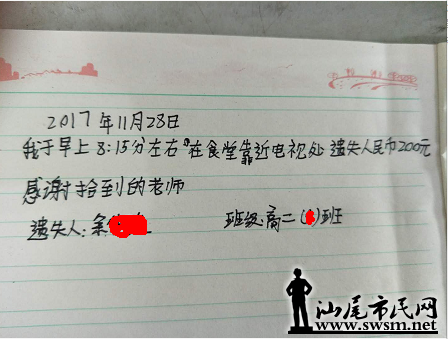 2017年11月28日
我于早上8:15分左右在食堂靠近电视处遗失人民币200元
感谢拾到的老师
遗失人:余
班级:高二()班
汕尾市民网
www.swsm.net